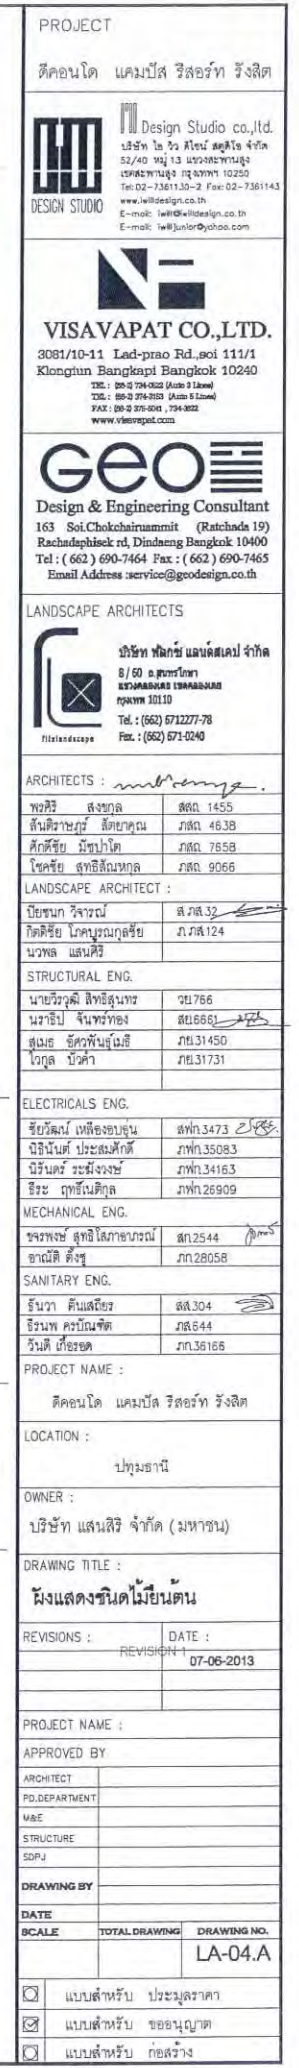 PROJECT
ดีคอนโด แคมปัส รีสอร์ท รังสิต
Design Studio co.,ltd.
บริษัท ไอ วิว ดีไซน์ สตูดิโอ จำกัด
52/40 หมู่ 13 แขวงสะพานสูง
เขตสะพานสูง กรุงเทพฯ 10250
Tel: 02-7361130-2 Fax: 02-7361143
www.iwilldesign.co.th
E-mail: iwill@iwilldesign.co.th
E-mail: iwilljunior@yahoo.com
DESIGN STUDIO
VISAVAPAT CO.,LTD.
3081/10-11 Lad-prao Rd.,soi 111/1
Klongjun Bangkapi Bangkok 10240
TEL : (66-2) 734-0522 (Auto 3 Lines)
TEL : (66-2) 374-3153 (Auto 5 Lines)
FAX : (66-2) 375-5041 , 734-3622
www.visavapat.com
GEO
Design & Engineering Consultant
163 Soi.Chokchairuammit (Ratchada 19)
Rachadaphisek rd, Dindaeng Bangkok 10400
Tel : ( 662 ) 690-7464 Fax : ( 662 ) 690-7465
Email Address :service@geodesign.co.th
LANDSCAPE ARCHITECTS
บริษัท ฟลิกซ์ แลนด์สเคป จำกัด
8 / 60 ถ.สุนทรโกษา
แขวงคลองเตย เขตคลองเตย
กรุงเทพ 10110
Tel. : (662) 6712277-78
Fax. : (662) 671-0240
flixlandscape
ARCHITECTS :
พรศิริ สงขกุล สสถ 1455
สันติราษฎร์ สัตยาคุณ ภสถ 4638
ศักดิ์ชัย มัชปาโต ภสถ 7658
โชคชัย สุทธิสัณหกุล ภสถ 9066
LANDSCAPE ARCHITECT :
ปิยชนก วิจารณ์ ส.ภส.32
กิตติชัย โภคบูรณกุลชัย ภ.ภส124
นวพล แสนศิริ
STRUCTURAL ENG.
นายวีรวุฒิ สิทธิสุนทร วย766
นราธิป จันทร์ทอง สย6661
สุเมธ อัศวพันธุ์เมธี ภย.31450
ไวกูล บัวคำ ภย.31731
ELECTRICALS ENG.
ชัยวัฒน์ เหลืองอบอุ่น สฟก.3473
นิธินันต์ ประสมศักดิ์ ภฟก.35083
นิรันดร์ ระฆังวงษ์ ภฟก.34163
ธีระ ฤทธิ์เนติกุล ภฟก.26909
MECHANICAL ENG.
ขจรพงษ์ สุทธิโสภาอาภรณ์ สก.2544
อาณัติ ตั้งชู ภก.28058
SANITARY ENG.
ธันวา ตันเสถียร สส.304
ธีรนพ ครบัณฑิต ภส.644
วันดี เกื้อรอด ภก.36166
PROJECT NAME :
ดีคอนโด แคมปัส รีสอร์ท รังสิต
LOCATION :
ปทุมธานี
OWNER :
บริษัท แสนสิริ จำกัด ( มหาชน)
DRAWING TITLE :
ผังแสดงชนิดไม้ยืนต้น
REVISIONS : DATE :
REVISION 1 07-06-2013
PROJECT NAME :
APPROVED BY
ARCHITECT
PD.DEPARTMENT
M&E
STRUCTURE
SDPJ
DRAWING BY
DATE
SCALE TOTAL DRAWING DRAWING NO.
LA-04.A
แบบสำหรับ ประมูลราคา
แบบสำหรับ ขออนุญาต
แบบสำหรับ ก่อสร้าง